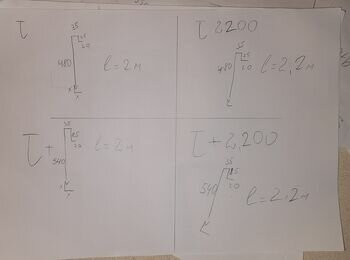 τ
35
25
20
480
x
x
l=2м
τ 2200
35
25
20
480
l=2,2м
τ+
35
25
20
540
x
x
l=2м
τ+2,200
35
20
540
l=2,2м